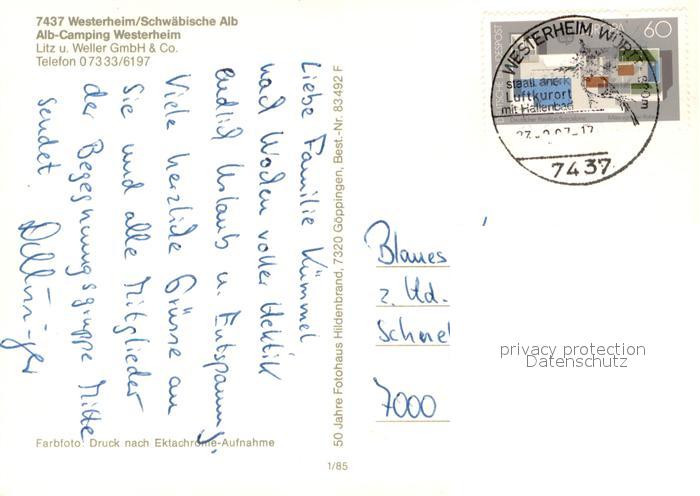 7437 Westerheim/Schwäbische Alb
Alb-Camping Westerheim
Litz u. Weller GmbH & Co.
Telefon 07333/6197
Liebe Familie Kümmel
nach Wochen voller Hektik
endlich Urlaub u. Entspannung.
Viele herzliche Grüsse an
Sie und alle Mitglieder
der Begegnungsgruppe Mitte
sendet
50 Jahre Fotohaus Hildenbrand, 7320 Göppingen, Best.-Nr. 83492 F
60
WESTERHEIM, WÜRTT
staatl. anerk.
Luftkurort
mit Hallenbad
7437
Blaues
z. Hd.
7000
privacy protection
Datenschutz
Farbfoto: Druck nach Ektachrome-Aufnahme
1/85